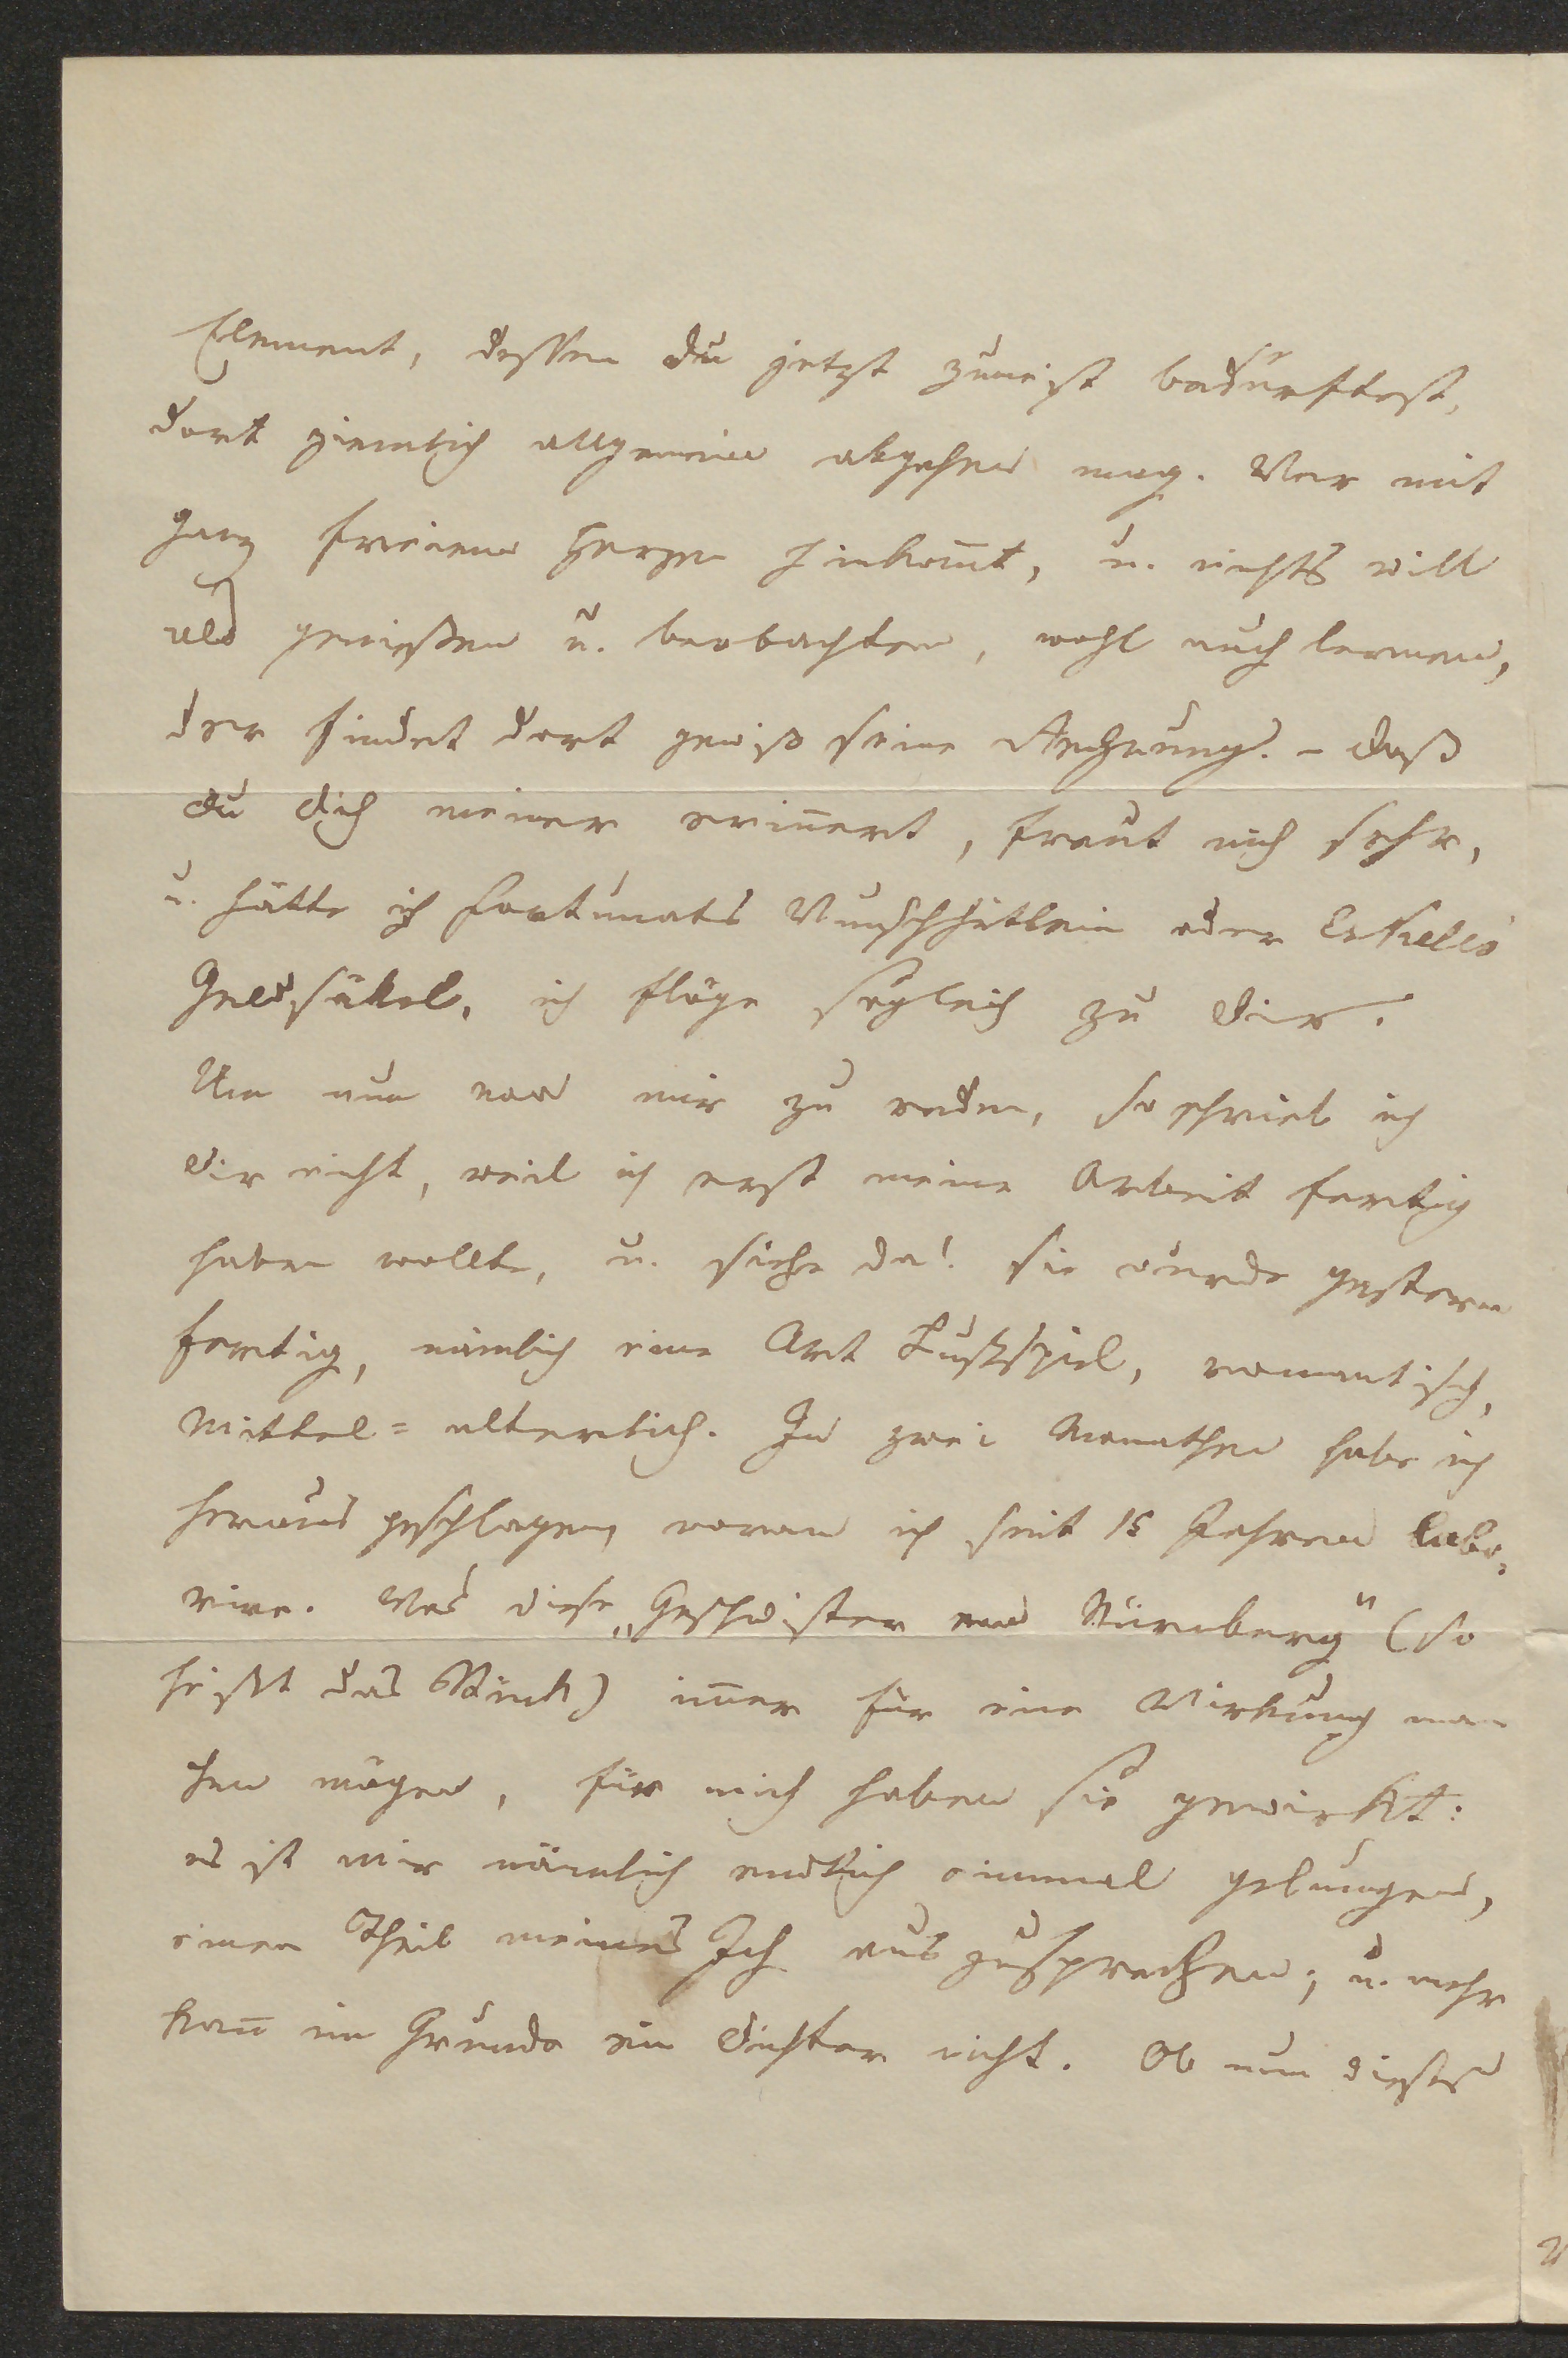 Element, dessen du jetzt zumeist bedürftest,
dort ziemlich allgemein abgehen mag. Wer mit
ganz freiem Herzen hinkom̅t, u. nichts will
als genießen u. beobachten, wohl auch lernen,
der findet dort gewiß seine Rechnung. – Daß
du dich meiner erin̅ert, freut mich sehr,
u. hätte ich Fortunats Wunschhütlein oder Eskeles'
Geldsäkel, ich flöge sogleich zu dir.
Um nun von mir zu reden, so schrieb ich
dir nicht, weil ich erst meine Arbeit fertig
haben wollte, u. siehe da! sie wurde gestern
fertig, nämlich eine Art Lustspiel, romantisch,
mittel=alterlich. In zwei Monathen habe ich
heraus geschlagen, woran ich seit 15 Jahren labo=
rire. Was diese „Geschwister von Nürnberg" (so
heißt das Stück) im̅er für eine Wirkung ma
chen mögen, für mich haben sie gewirkt:
es ist mir nämlich endlich einmal gelungen,
einen Theil meines Ich auszusprechen; u. mehr
kan̅ im Grunde ein Dichter nicht. Ob nun dieses